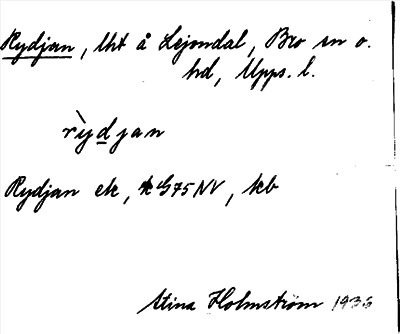 Rydjan, lht å Lejondal, Bro sn o.
hd, Upps. l.
rỳdjan
Rydjan ek, k G75NV, kb
Stina Holmström 1936